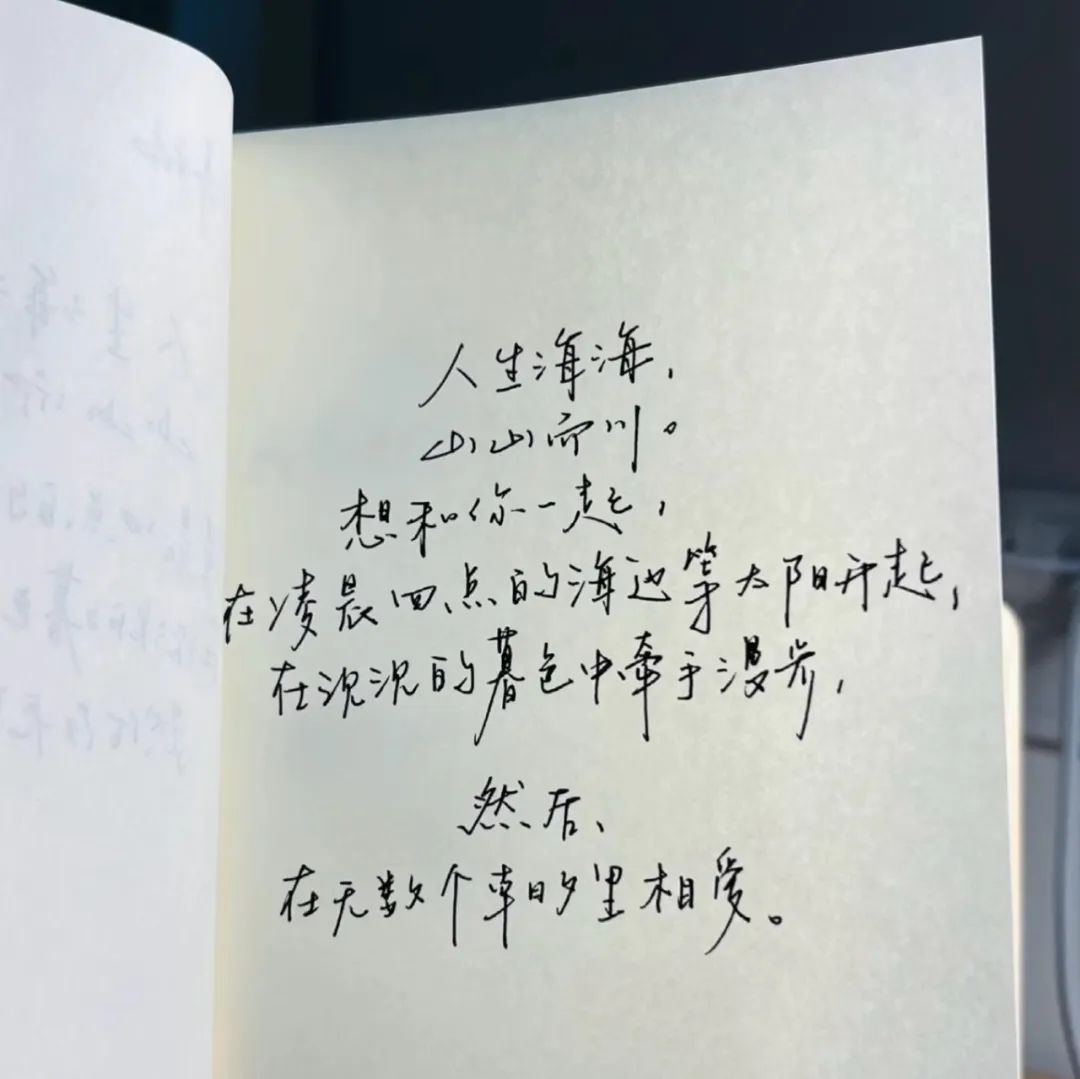 人生海海，
山山而川。
想和你一起，
在凌晨四点的海边等太阳升起，
在沉沉的暮色中牵手漫步，
然后、
在无数个朝夕里相爱。